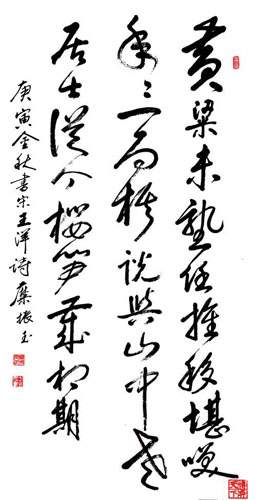 黄粱未熟任推移堪咲
年々一局棋説與山中老
居士從今櫻笋歲相期
庚寅金秋書宋王洋詩 麋振玉